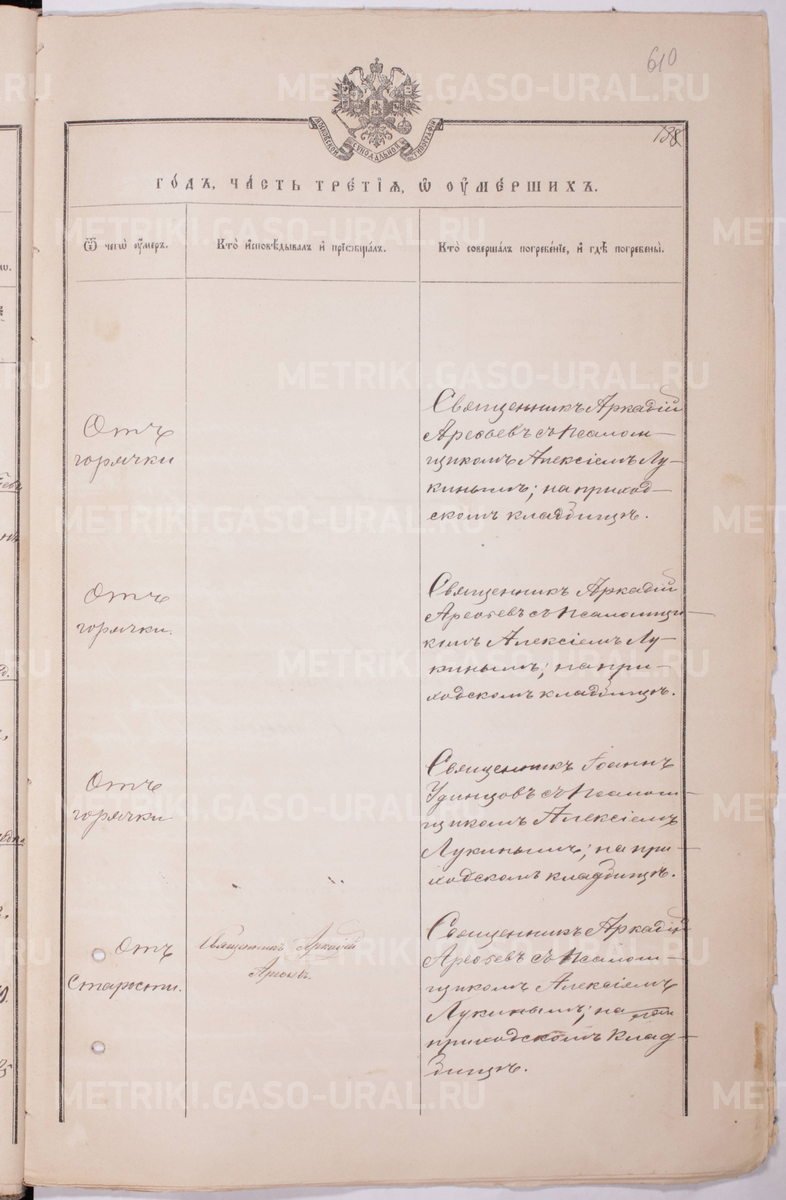 610
138
МОСКОВСКОЙ СѴНОДАЛЬНОЙ ТИПОГРАФІИ
ГО́ДЪ, ЧА́СТЬ ТРЕ́ТІЯ, Ѡ҆ ОУ҆МЕ́РШИХЪ.
Ѿ чегѡ̀ ᲂу҆́меръ.
Кто̀ и҆сповѣ́дывалъ и҆ прїѡбща́лъ.
Кто̀ соверша́лъ погребе́нїе, и҆ гдѣ̀ погребены̀.
Отъ
горячки
Священникъ Аркадій
Арефьевъ съ Псалом-
щикомъ Алексіемъ Лу-
кинымъ; на приход-
скомъ кладбищѣ.
Отъ
горячки.
Священникъ Аркадій
Арефьевъ съ Псаломщи-
комъ Алексіемъ Лу-
кинымъ; на при-
ходскомъ кладбищѣ.
Отъ
горячки
Священникъ Іоаннъ
Удинцовъ съ Псалом-
щикомъ Алексіемъ
Лукинымъ; на при-
ходскомъ кладбищѣ.
Отъ
Старости.
Священникъ Аркадій
Арефьевъ.
Священникъ Аркадій
Арефьевъ съ Псалом-
щикомъ Алексіемъ
Лукинымъ; на
приходскомъ Клад-
бищѣ.
METRIKI.GASO-URAL.RU